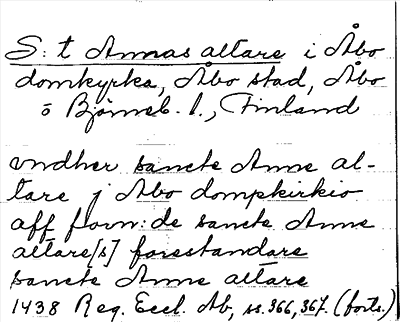 S:t Annas altare i Åbo
domkyrka, Åbo stad, Åbo
o Björneb. l., Finland
vndher sancte Anne al-
tare j Åbo dompkirkio
aff favn: de sancte Anne
altare[s] forestandare
sancte Anne altare
1438 Reg. Eccl. Ab, ss. 366, 367. (forts.)